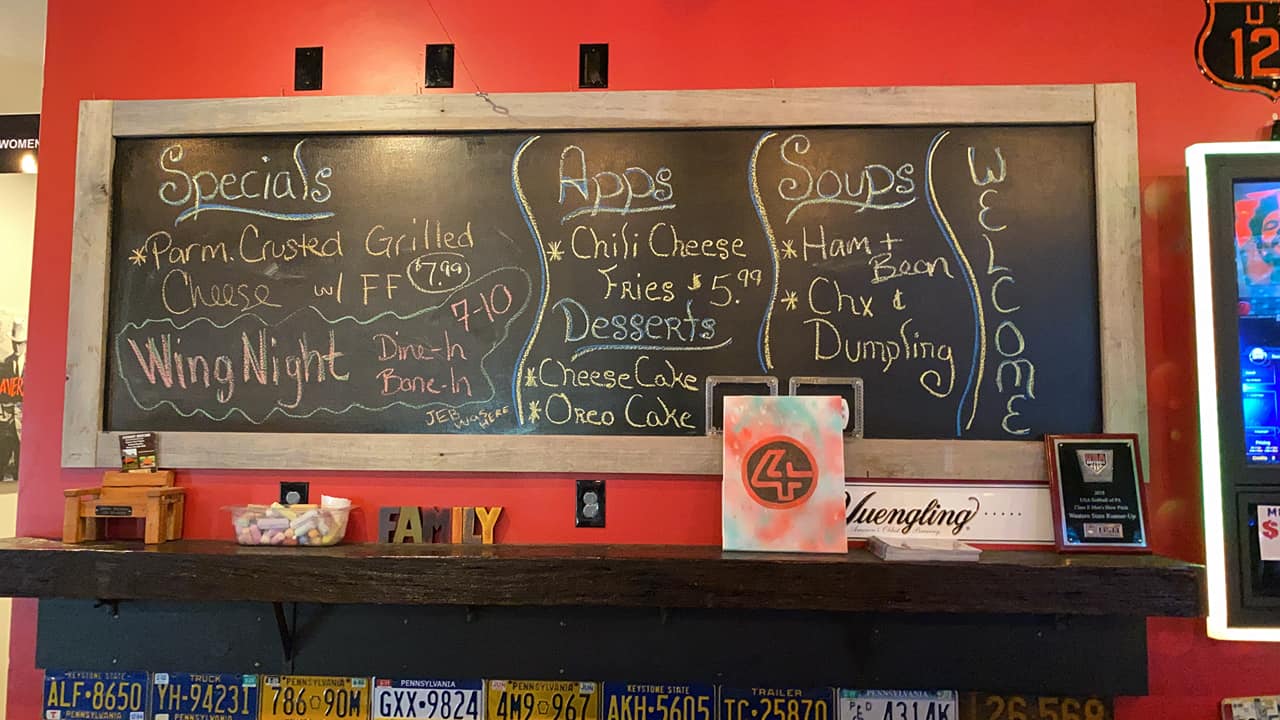 WOMEN
U
12
Specials
*Parm. Crusted Grilled
Cheese w/ FF $7.99
Wing Night
7-10
Dine-In
Bone-In
JEB WAS HERE
Apps
* Chili Cheese
Fries $5.99
Desserts
*CheeseCake
*Oreo Cake
Soups
*Ham +
Bean
* Chx &
Dumpling
WELCOME
FAMILY
4
Yuengling
America's Oldest Brewery
2018
USA Softball of PA
Class E Men's Slow Pitch
Western State Runner-Up
KEYSTONE STATE
ALF•8650
PENNSYLVANIA
TRUCK
YH-9423I
PENNSYLVANIA
PENNSYLVANIA
786 90M
PENNSYLVANIA
GXX•9824
PENNSYLVANIA
4M9 967
KEYSTONE STATE
AKH•5605
TRAILER
TC•25870
PENNSYLVANIA
4314K
26 569